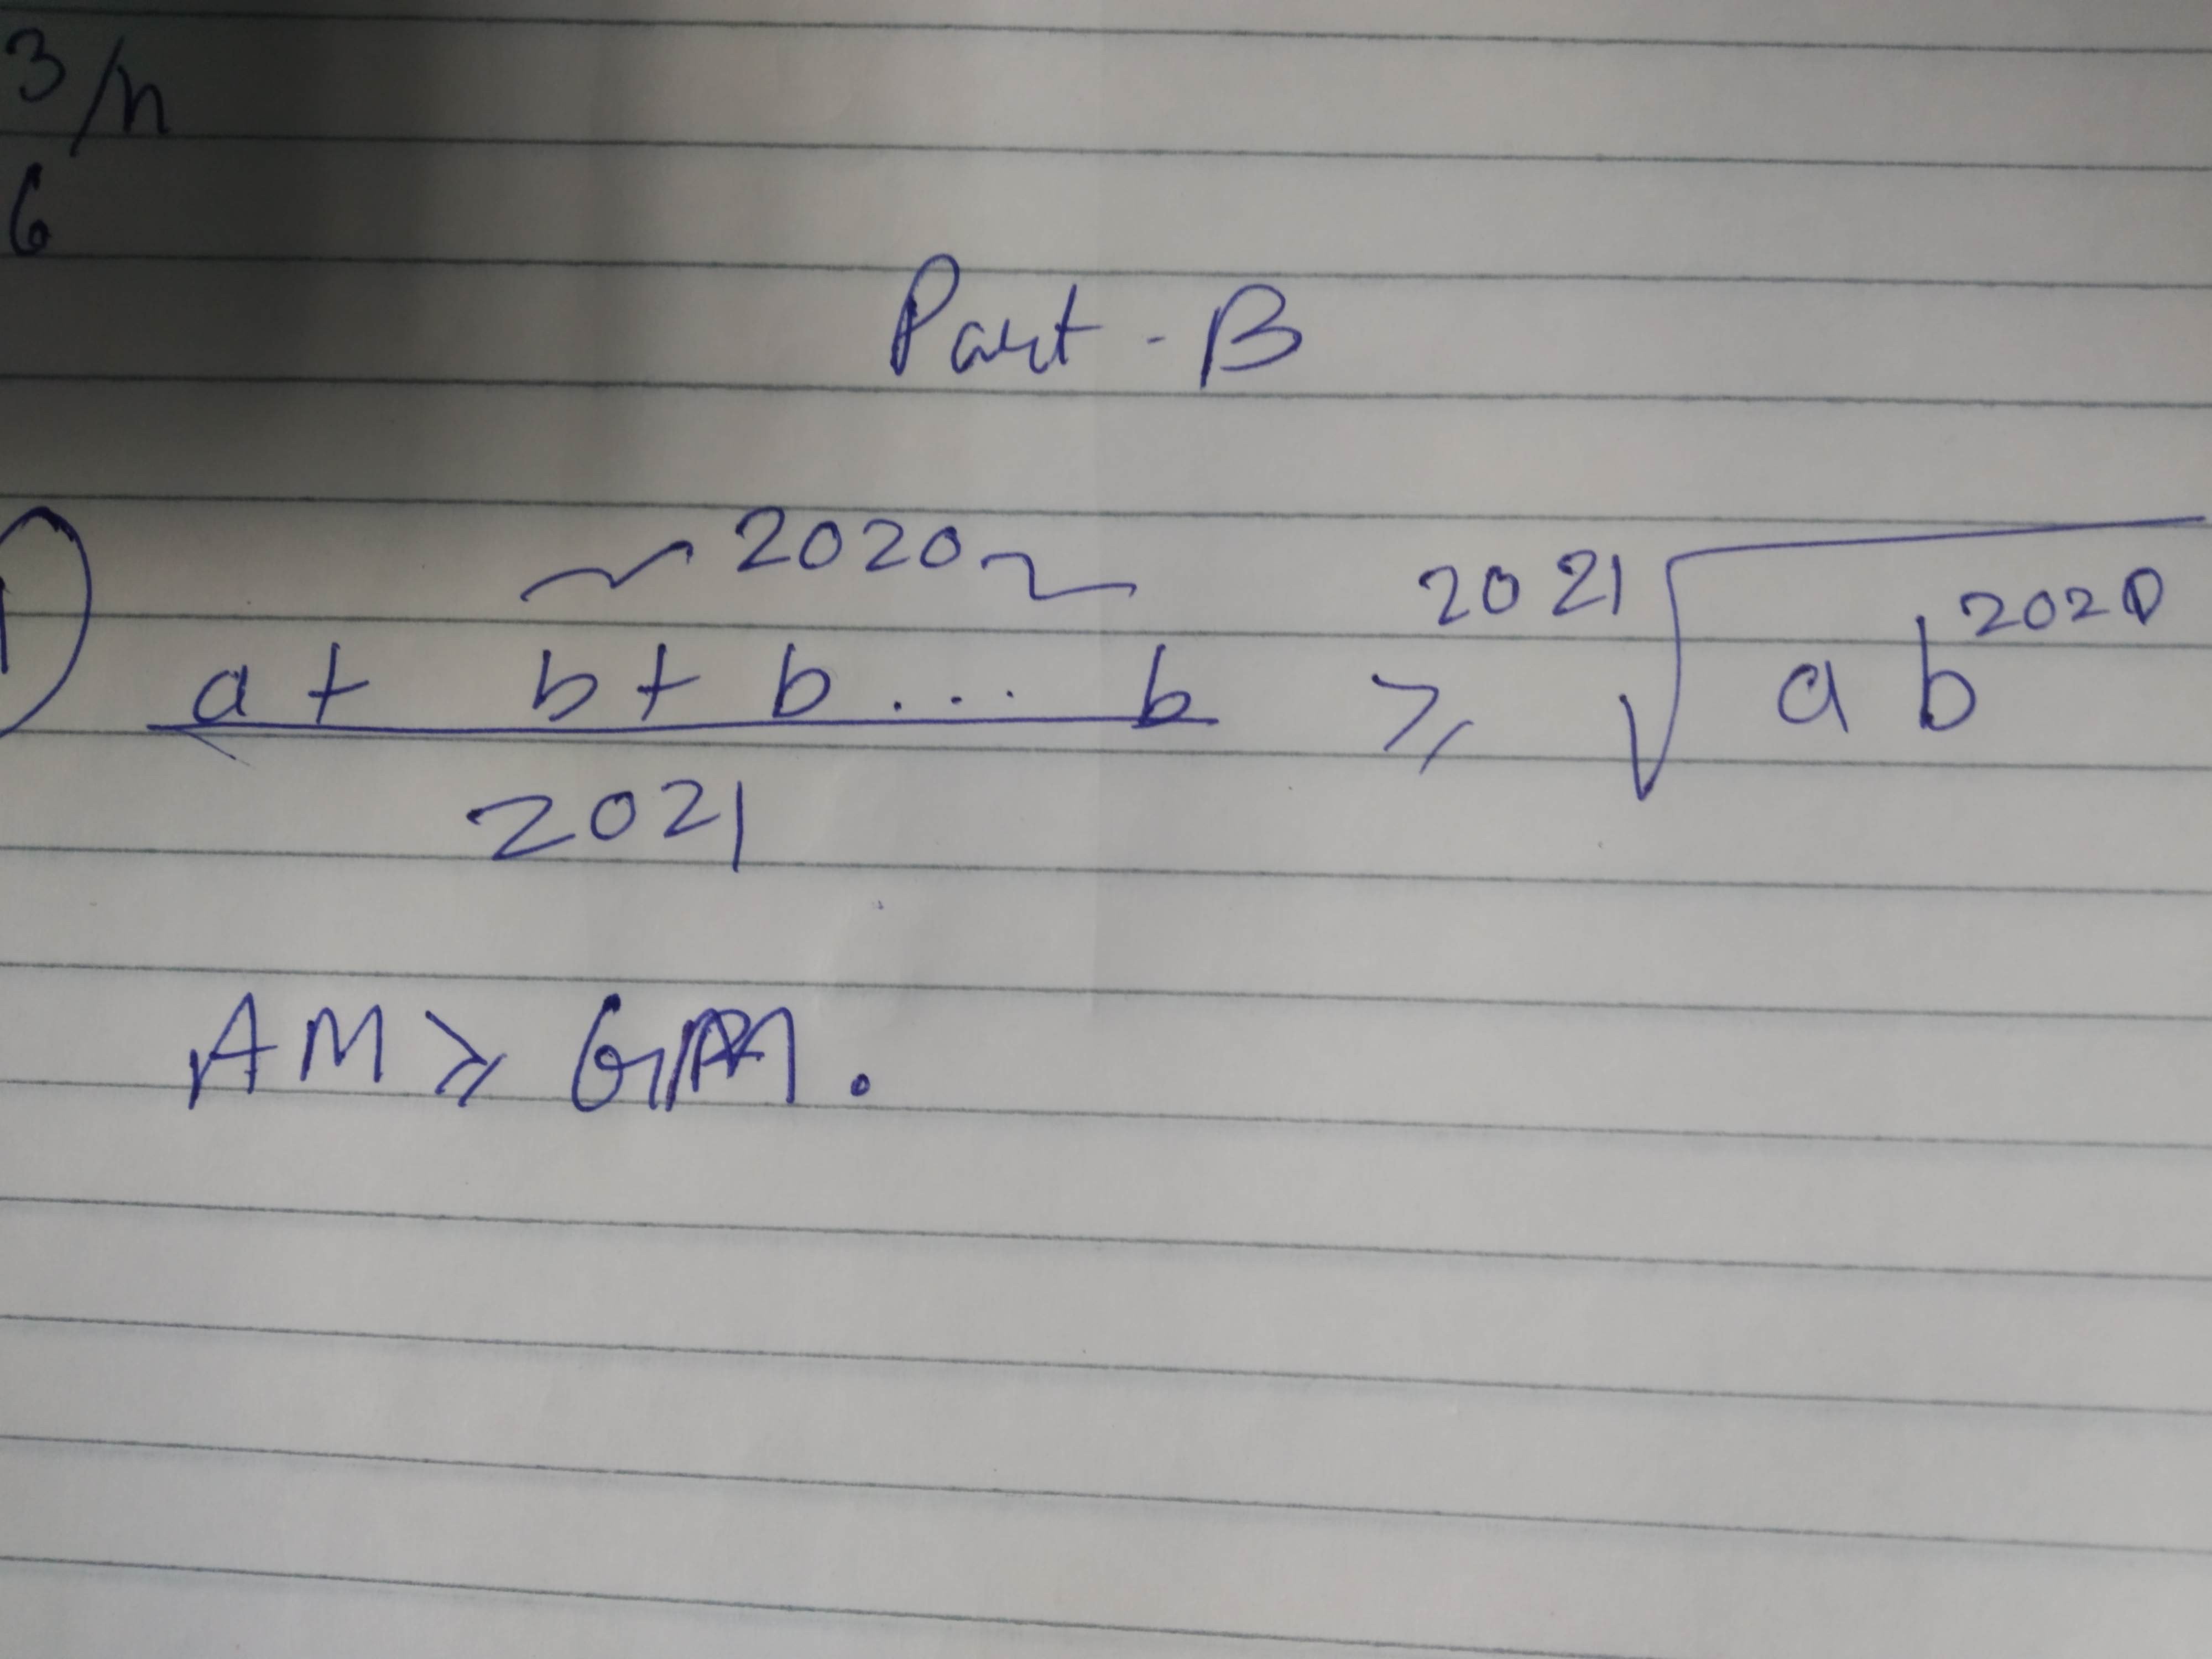 3/n
6
Part - B
1) a + b + b ... b / 2021 ≥ 2021√ab^2020
~ 2020 ~
AM ≥ GM.